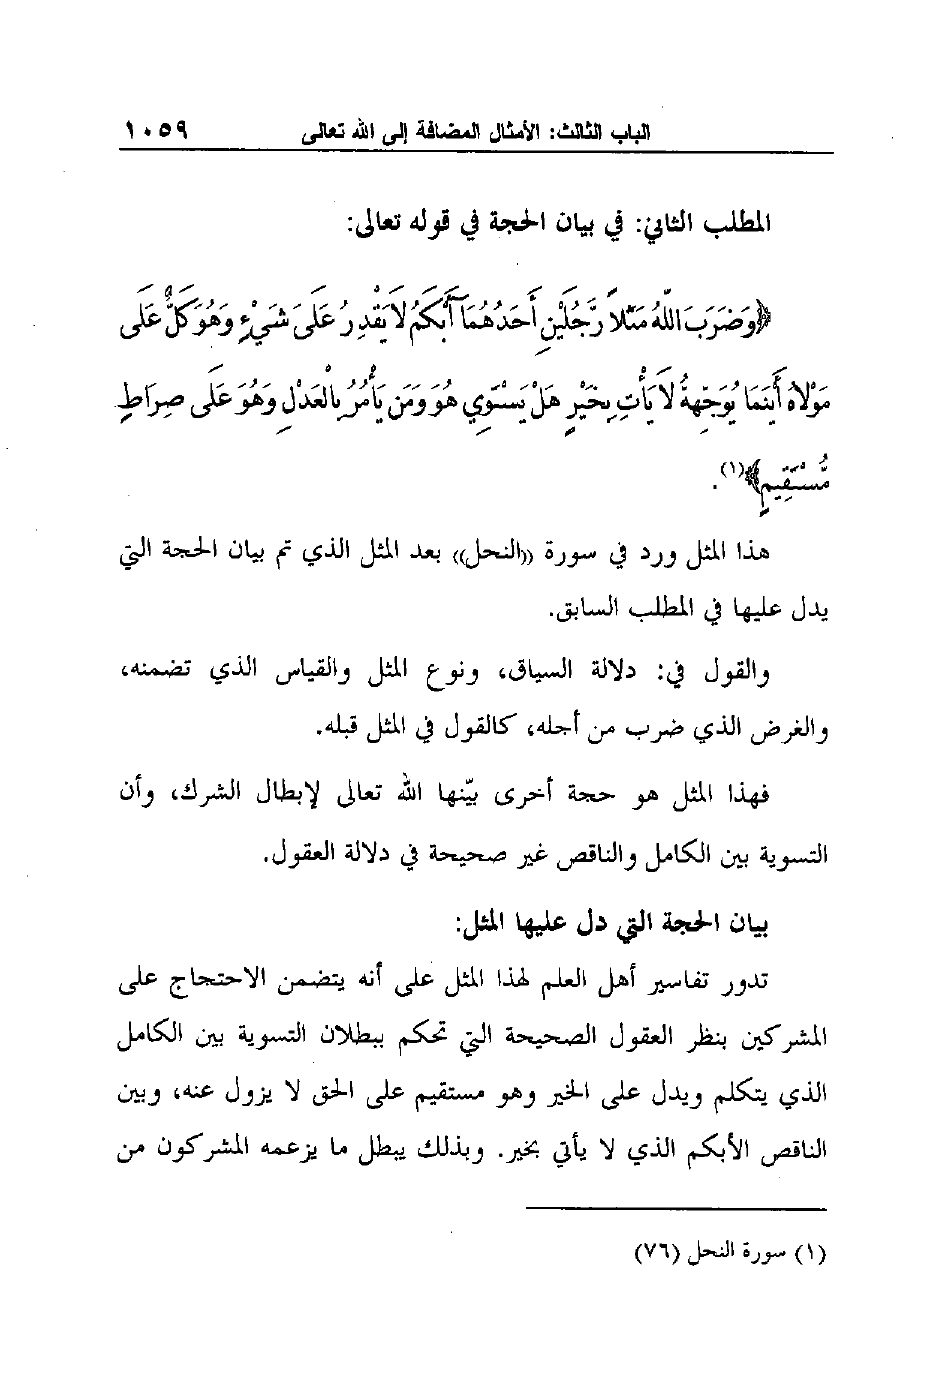 الباب الثالث: الأمثال المضافة إلى الله تعالى ١٠٥٩
المطلب الثاني: في بيان الحجة في قوله تعالى:
﴿وَضَرَبَ اللَّهُ مَثَلًا رَّجُلَيْنِ أَحَدُهُمَا أَبْكَمُ لَا يَقْدِرُ عَلَىَ شَيْءٍ وَهُوَ كَلٌّ عَلَى
مَوْلَاهُ أَيْنَمَا يُوَجِّههُّ لَا يَأْتِ بِخَيْرٍ هَلْ يَسْتَوِي هُوَ وَمَن يَأْمُرُ بِالْعَدْلِ وَهُوَ عَلَى صِرَاطٍ
مُّسْتَقِيمٍ﴾(١).
هذا المثل ورد في سورة ((النحل)) بعد المثل الذي تم بيان الحجة التي
يدل عليها في المطلب السابق.
والقول في: دلالة السياق، ونوع المثل والقياس الذي تضمنه،
والغرض الذي ضرب من أجله، كالقول في المثل قبله.
فهذا المثل هو حجة أخرى بيّنها الله تعالى لإبطال الشرك، وأن
التسوية بين الكامل والناقص غير صحيحة في دلالة العقول.
بيان الحجة التي دل عليها المثل:
تدور تفاسير أهل العلم لهذا المثل على أنه يتضمن الاحتجاج على
المشركين بنظر العقول الصحيحة التي تحكم ببطلان التسوية بين الكامل
الذي يتكلم ويدل على الخير وهو مستقيم على الحق لا يزول عنه، وبين
الناقص الأبكم الذي لا يأتي بخير. وبذلك يبطل ما يزعمه المشركون من
(١) سورة النحل (٧٦)